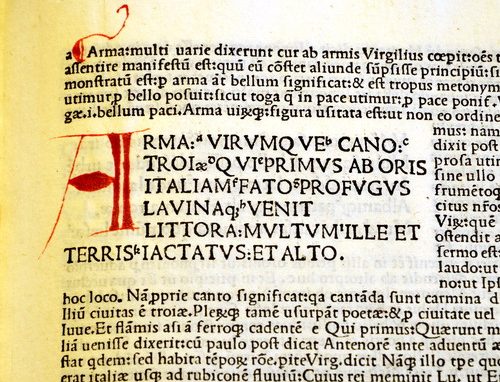 a Arma: multi uarie dixerunt cur ab armis Virgilius cœpit: oẽs t
assentire manifestũ est: quũ eũ cõstet aliunde sũpsisse principiũ: si
monstratũ est: p arma aũt bellum significat: & est tropus metonym
utimur, p bello posuit: sicut toga q̃ in pace utimur: p pace poniṫ.
gæ.i. bellum paci. Arma uirũq: figura usitata est: ut non eo ordine
ARMA:ᵃ VIRVMQVEᵇ CANO:ᶜ
TROIæᵈ QVIᵉ PRIMVS AB ORIS
ITALIAMᶠ FATOᵍ PROFVGVS
LAVINAq;ʰ VENIT
LITTORA: MVLTVMⁱ ILLE ET
TERRISᵏ IACTATVS: ET ALTO.
mus: nam
dixit post
prosa utit
sine ullo
frumẽtoq
citus nr̃os
Virg: quẽ
ostendit
fersit do
laudo: ut
no: ut Ips
hoc loco. Nã, pprie canto significat: qa cantãda sunt carmina d
Iliũ ciuitas ẽ troiæ. Plerũq tamẽ usurpãt poetæ: & p ciuitate uel
Iuue. Et flãmis asi ã ferroq cadentẽ e Qui primus: Quærunt m
lia uenisse dixerit: cũ paulo post dicat Antenorẽ ante aduentũ æ
stat qdem: sed habita tẽpor rõe. pite Virg. dicit Nãq illo tpe que
erat italiæ usq ad rubiconẽ fluuiũ: Cuius rei meminit Lu